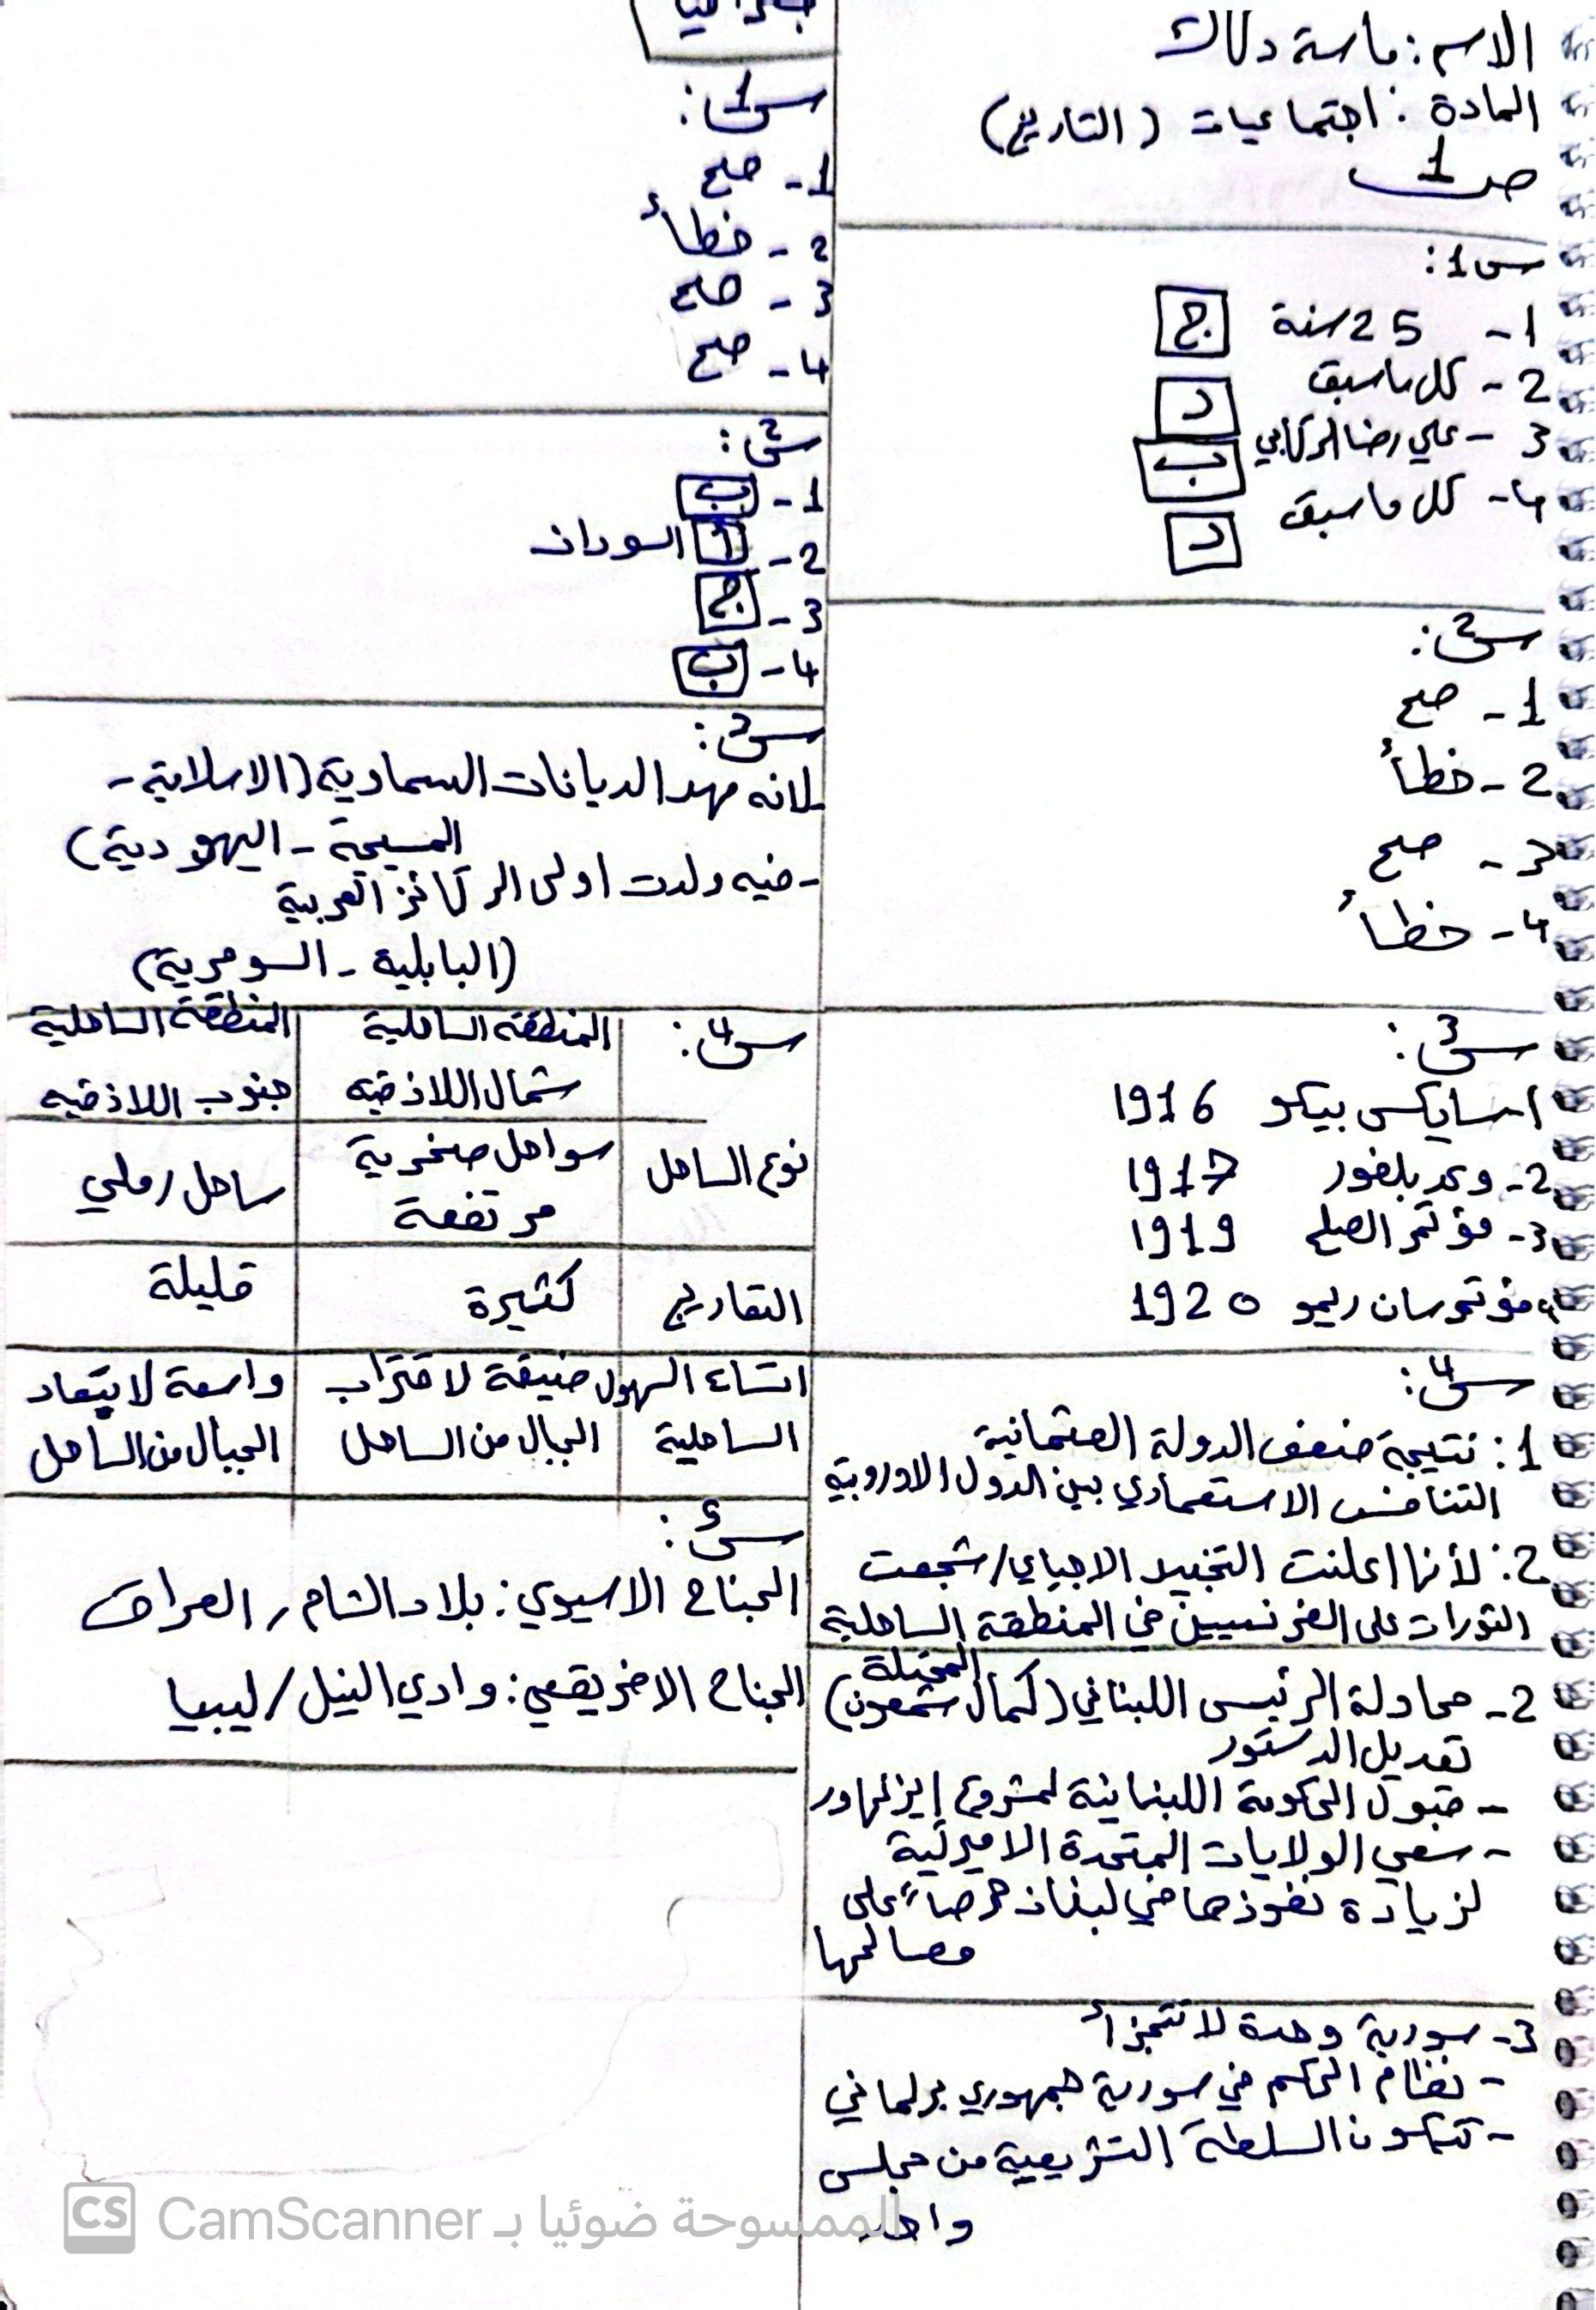 الاسم: ماسة دلاك
المادة: اجتماعيات (التاريخ)
صـ1
س1:
1- 25 سنة ج
2- كل ماسبق د
3- علي رضا الركابي ب
4- كل ماسبق د
س2:
1- صح
2- خطأ
3- صح
4- خطأ
س3:
1- سايكس بيكو 1916
2- وعد بلفور 1917
3- مؤتمر الصلح 1919
4- مؤتمر سان ريمو 1920
س4:
1: نتيجة ضعف الدولة العثمانية
التنافس الاستعماري بين الدول الاوروبية
2: لأنها اعلنت التجنيد الاجباي/شجعت
الثورات على الفرنسيين في المنطقة الساحلية
المحتلة
2- محاولة الرئيس اللبناني (كمال شمعون)
تعديل الدستور
- قبول الحكومة اللبنانية لمشروع إيزنهاور
- سعي الولايات المتحدة الاميركية
لزيادة نفوذها في لبنان حرصاً على
مصالحها
3- سورية وحدة لا تتجزأ
- نظام الحكم في سورية جمهوري برلماني
- تتكون السلطة التشريعية من مجلس
واحد
جغرافيا
س1:
1- صح
2- خطأ
3- صح
4- صح
س2:
1- ب
2- أ السودان
3- ج
4- ب
س3:
لانه مهد الديانات السماوية (الاسلامية -
المسيحية - اليهودية)
- فيه ولدت اولى الركائز العربية
(البابلية - السومرية)
س4: المنطقة الساحلية المنطقة الساحلية
شمال اللاذقيه جنوب اللاذقيه
نوع الساحل سواحل صخرية ساحل رملي
مرتفعة
التعاريج كثيرة قليلة
اتساع السهول ضيقة لاقتراب واسعة لابتعاد
الساحلية الجبال من الساحل الجبال من الساحل
س5:
الجناح الاسيوي: بلاد الشام, العراق
الجناح الافريقي: وادي النيل/ليبيا
CS CamScanner الممسوحة ضوئيا بـ